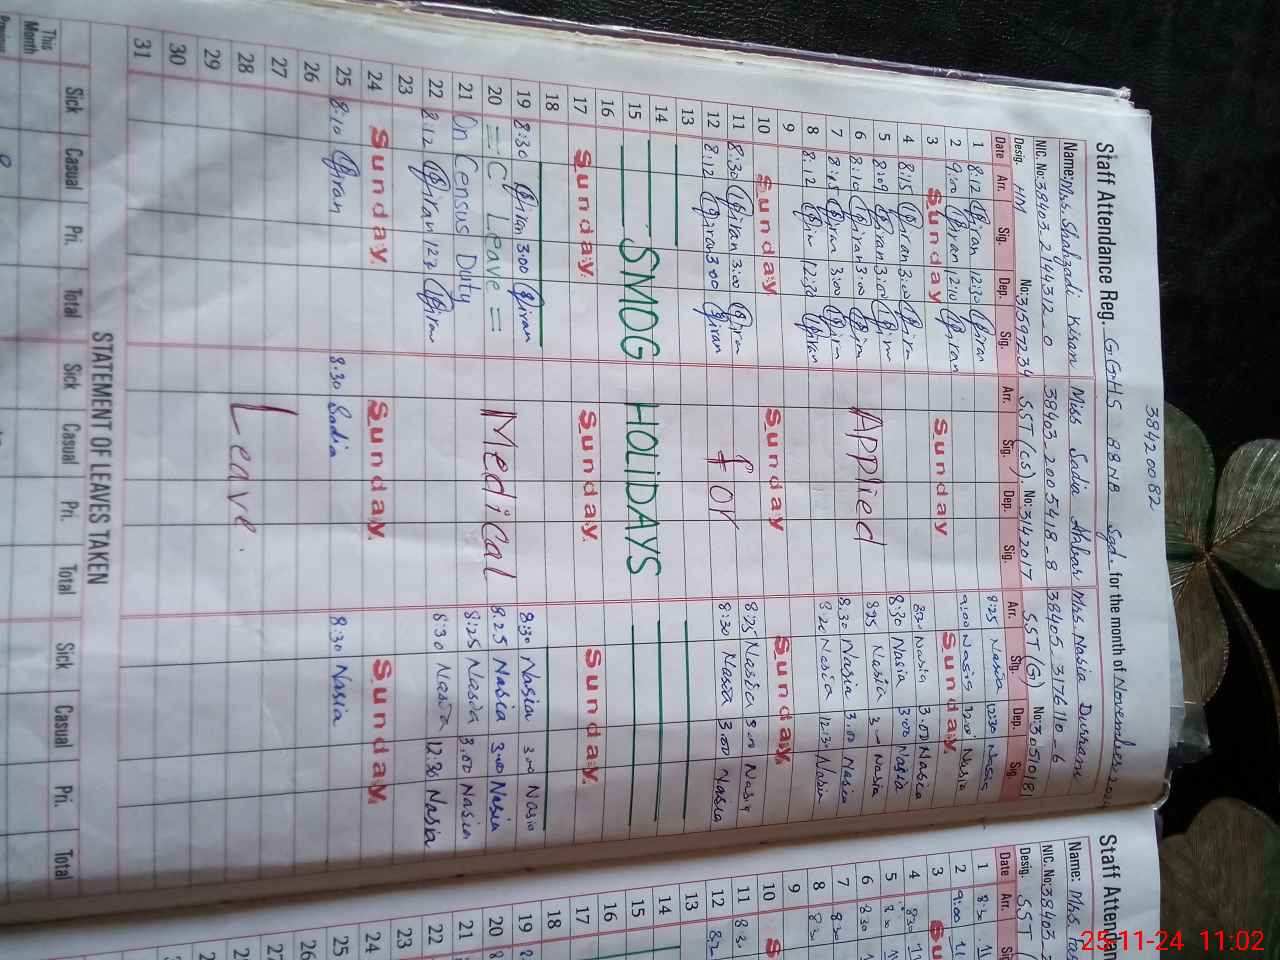 38420082
Staff Attendance Reg. G.G.H.S 88NB Sgd. for the month of November
Name: Mrs. Shahzadi Kiran Miss Sadia Akbar Mrs. Nasia Durrani
NIC. No: 38403-2144312-0 38403-2005418-8 38405-3176110-6
Desig. HM No: 31597234 SST (CS). No: 3142017 SST (G) No: 30510181
Date Arr. Sig. Dep. Sig. Arr. Sig. Dep. Sig. Arr. Sig. Dep. Sig.
1 8:12 Kiran 12:30 Kiran 8:25 Nasia 12:30 Nasia
2 9:00 Kiran 12:10 Kiran 9:00 Nasia 12:00 Nasia
3 Sunday Sunday Sunday
4 8:15 Kiran 3:00 Kiran 8:30 Nasia 3:00 Nasia
5 8:09 Kiran 3:00 Kiran 8:30 Nasia 3:00 Nasia
6 8:10 Kiran 3:00 Kiran Applied 8:25 Nasia 3:00 Nasia
7 8:15 Kiran 3:00 Kiran 8:30 Nasia 3:00 Nasia
8 8:12 Kiran 12:30 Kiran 8:20 Nasia 12:30 Nasia
9
10 Sunday Sunday Sunday
11 8:30 Kiran 3:00 Kiran 8:25 Nasia 3:00 Nasia
12 8:12 Kiran 3:00 Kiran for 8:30 Nasia 3:00 Nasia
13
14
15 SMOG HOLIDAYS
16
17 Sunday Sunday Sunday
18
19 8:30 Kiran 3:00 Kiran 8:30 Nasia 3:00 Nasia
20 = C. Leave = Medical 8:25 Nasia 3:00 Nasia
21 On Census Duty 8:25 Nasia 3:00 Nasia
22 8:12 Kiran Kiran 8:30 Nasia 12:30 Nasia
23
24 Sunday Sunday Sunday
25 8:10 Kiran 8:30 Sadia 8:30 Nasia
26
27
28 Leave.
29
30
31
STATEMENT OF LEAVES TAKEN
Sick Casual Pri. Total Sick Casual Pri. Total Sick Casual Pri. Total
This Month
Previous
Staff Attendan
Name: Mrs.
NIC. No: 38403-2
Desig. SST
Date Arr.
1 8:30
2 9:00
3 Su
4 8:30
5 8:30
6 8:30
7 8:30
8 8:30
9
10 S
11 8:30
12
13
14
15
16
17
18
19
20
21
22
23
24
25
26
27
28
25-11-24 11:02